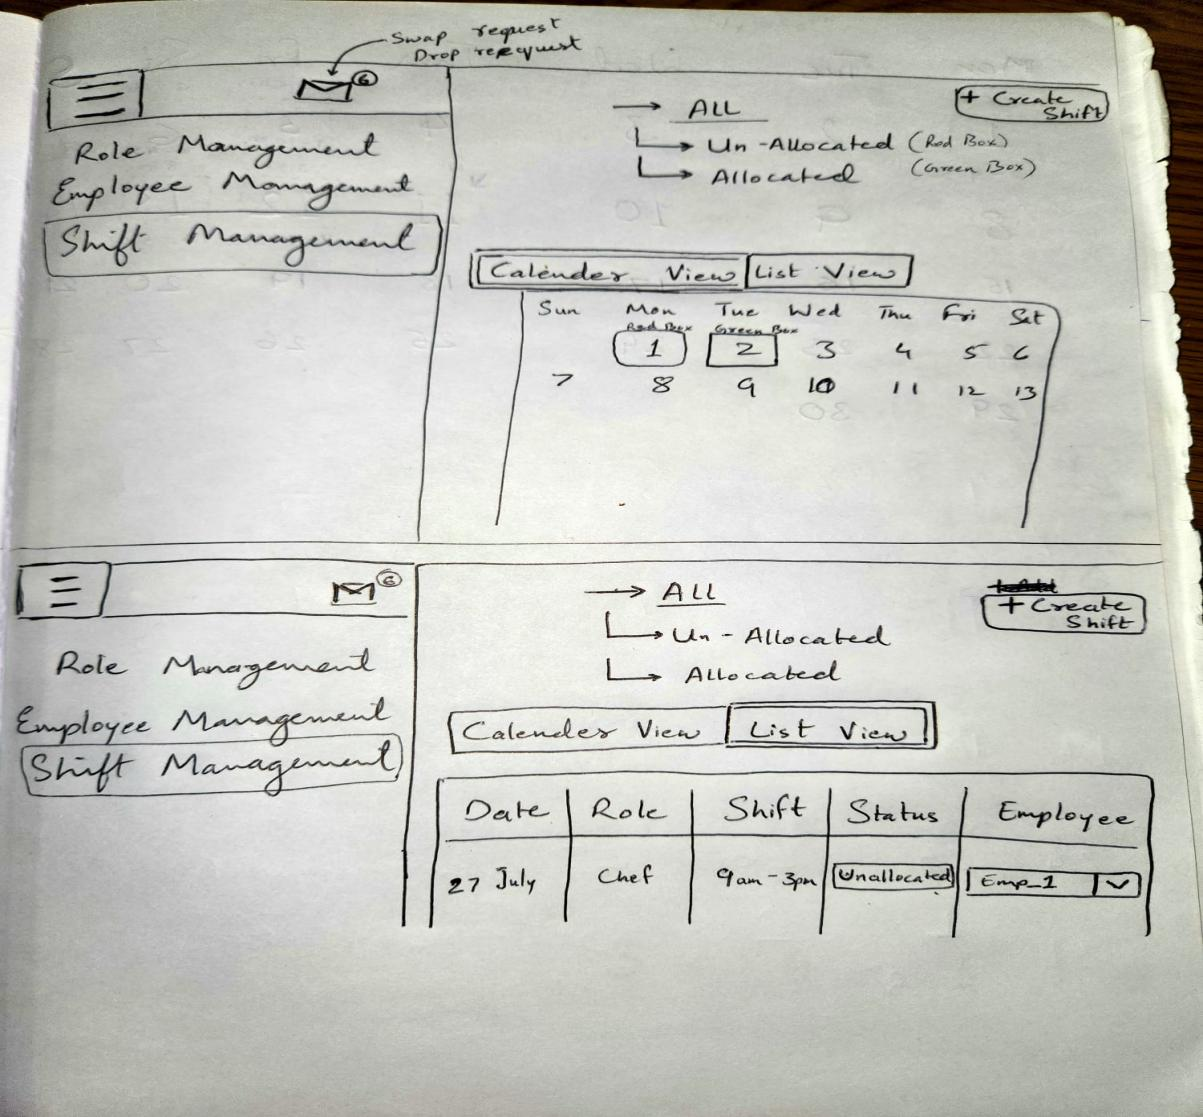 Swap request
Drop request
6
Role Management
Employee Management
Shift Management
→ ALL
→ Un-Allocated (Red Box)
→ Allocated (Green Box)
+ Create
Shift
Calender View List View
Sun Mon Tue Wed Thu Fri Sat
Red Box Green Box
1 2 3 4 5 6
7 8 9 10 11 12 13
6
Role Management
Employee Management
Shift Management
→ ALL
→ Un-Allocated
→ Allocated
+ Create
Shift
Calender View List View
Date Role Shift Status Employee
27 July Chef 9am-3pm Unallocated Emp_1